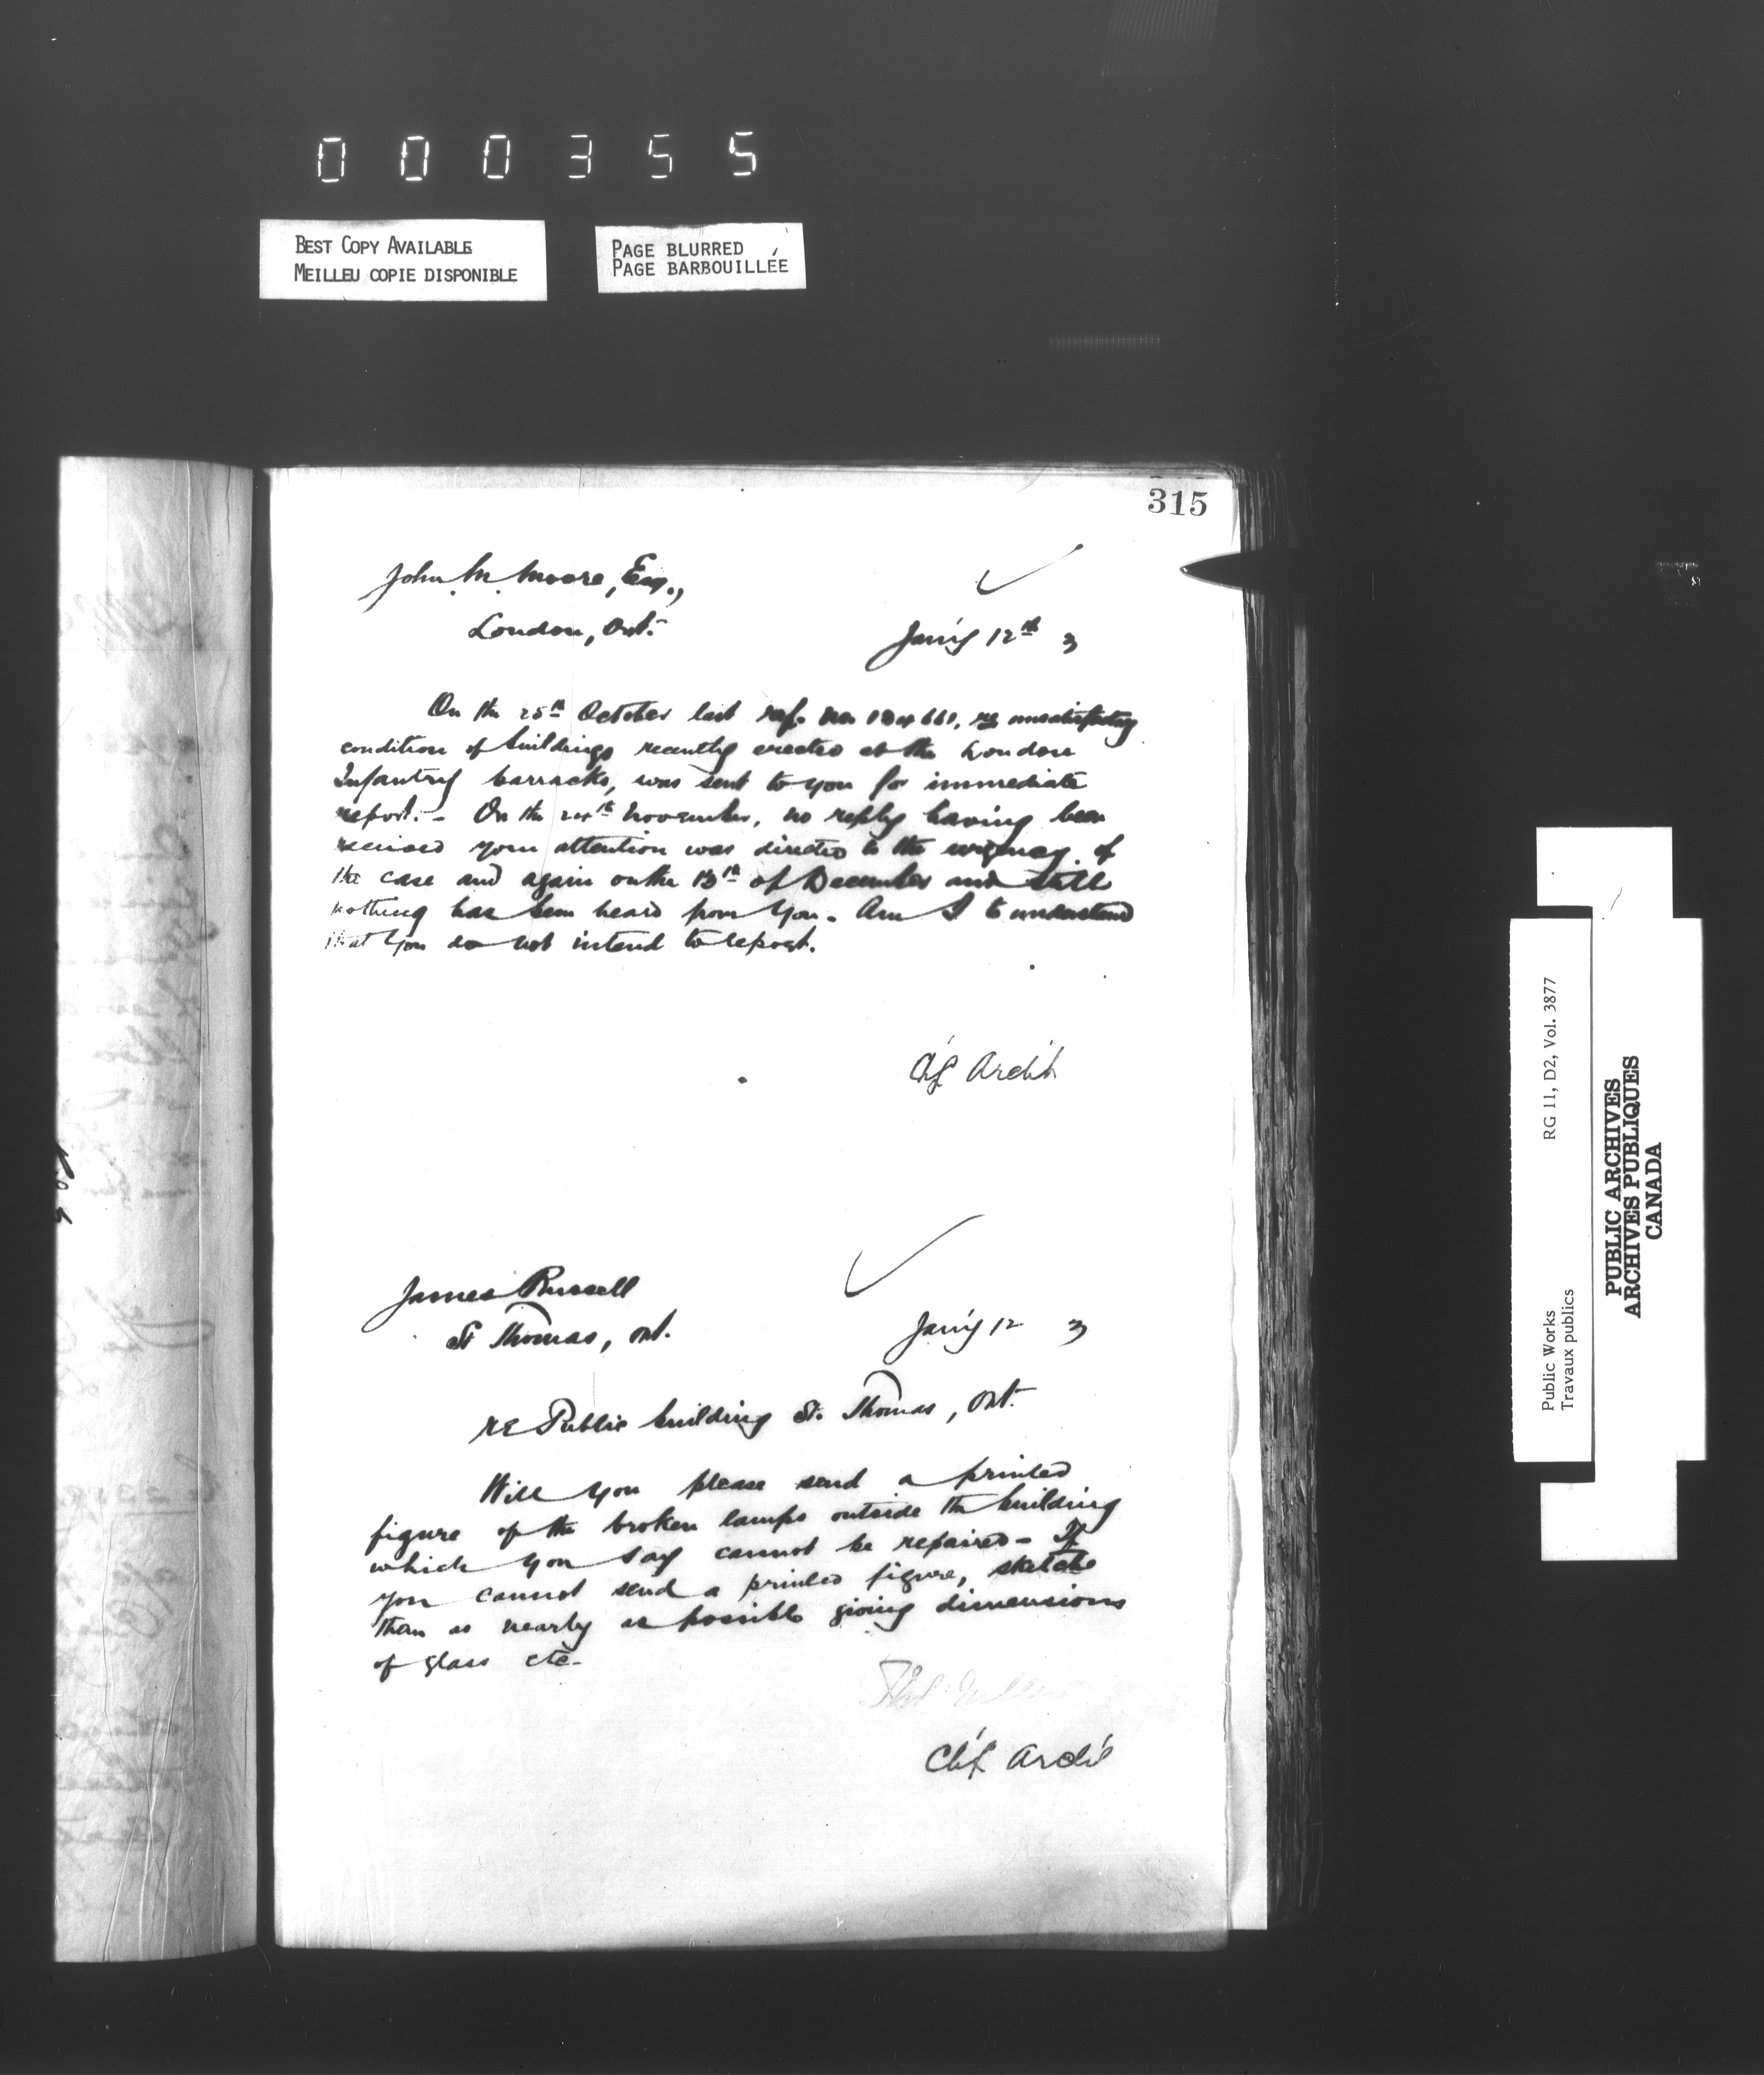 000355
BEST COPY AVAILABLE
MEILLEU COPIE DISPONIBLE
PAGE BLURRED
PAGE BARBOUILLÉE
315
John M. Moore, Esq.,
London, Ont.
Jan'y 12th 3
On the 25th October last ref. no. re unsatisfactory
condition of buildings recently erected at the London
Infantry barracks, was sent to you for immediate
report. - On the 24th November, no reply having been
received your attention was directed to the urgency of
the case and again on the 13th of December and still
nothing has been heard from you. Am I to understand
that you do not intend to report.
Ch'f Arch't
James Russell
St Thomas, Ont.
Jan'y 12 3
RE Public building St. Thomas, Ont.
Will you please send a printed
figure of the broken lamps outside the building
which you say cannot be repaired - If
you cannot send a printed figure, sketch
them as nearly as possible giving dimensions
of glass etc -
Ch'f Arch't
Public Works
Travaux publics
RG 11, D2, Vol. 3877
PUBLIC ARCHIVES
ARCHIVES PUBLIQUES
CANADA